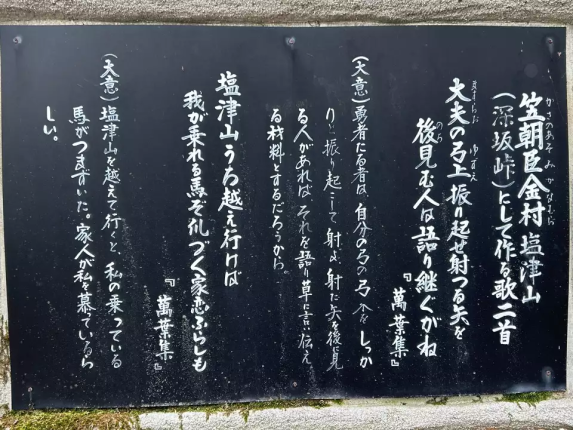 笠朝臣金村塩津山
かさのあそみかなむら
(深坂峠)にして作る歌二首
大夫の弓上振り起せ射つる矢を
ますらお ゆずえ
後見む人は語り継ぐがね
のち
『萬葉集』
(大意)勇者たる者は、自分の弓の弓ずえをしっか
りと振り起こして射よ、射た矢を後に見
る人があれば、それを語り草に言い伝え
る材料とするだろうから。
塩津山うち越え行けば
我が乗れる馬ぞ爪づく家恋ふらしも
『萬葉集』
(大意)塩津山を越えて行くと、私の乗っている
馬がつまずいた。家人が私を慕っているら
しい。